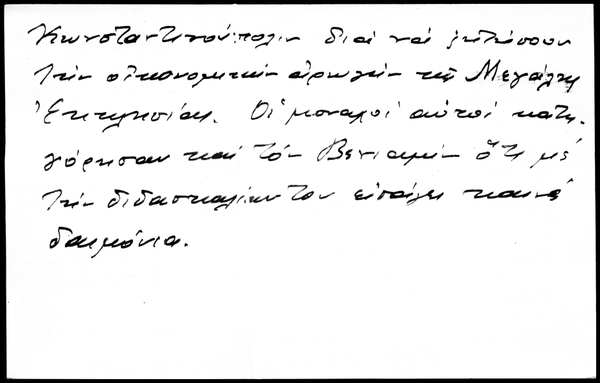 Κωνσταντινούπολιν διά νά ζητήσουν
τήν οἰκονομικήν ἀρωγήν τῆς Μεγάλης
Ἐκκλησίας. Οἱ μοναχοί αὐτοί κατη-
γόρησαν καί τόν Βενιαμίν ὅτι μέ
τήν διδασκαλίαν του εἰσάγει καινά
δαιμόνια.